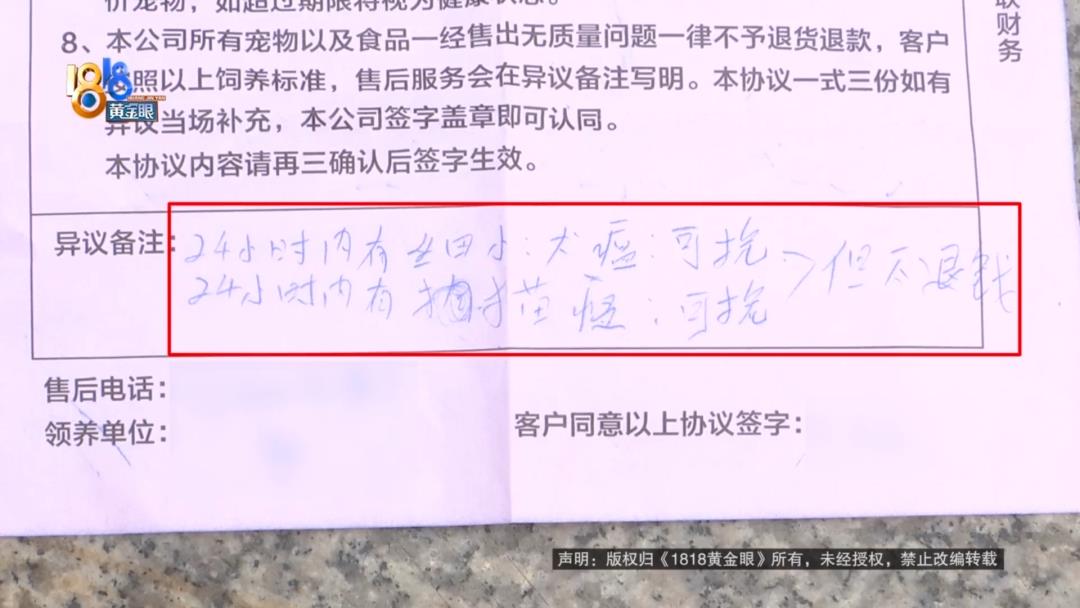 价宠物，如超过期限将视为健康状态。
8、本公司所有宠物以及食品一经售出无质量问题一律不予退货退款，客户
照以上饲养标准，售后服务会在异议备注写明。本协议一式三份如有
异议当场补充，本公司签字盖章即可认同。
本协议内容请再三确认后签字生效。
联财务
1818
黄金眼
异议备注：24小时内有细小：犬瘟：可换
24小时内有猫瘟：可换
但不退钱
售后电话：
领养单位：
客户同意以上协议签字：
声明：版权归《1818黄金眼》所有，未经授权，禁止改编转载